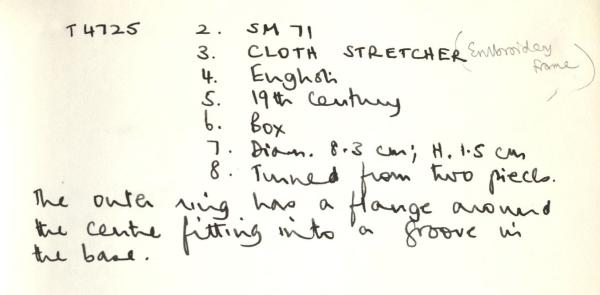 T4725 2. SM 71
3. CLOTH STRETCHER (Embroidery frame)
4. English
5. 19th Century
6. Box
7. Diam. 8.3 cm; H. 1.5 cm
8. Turned from two pieces.
The outer ring has a flange around
the centre fitting into a groove in
the base.